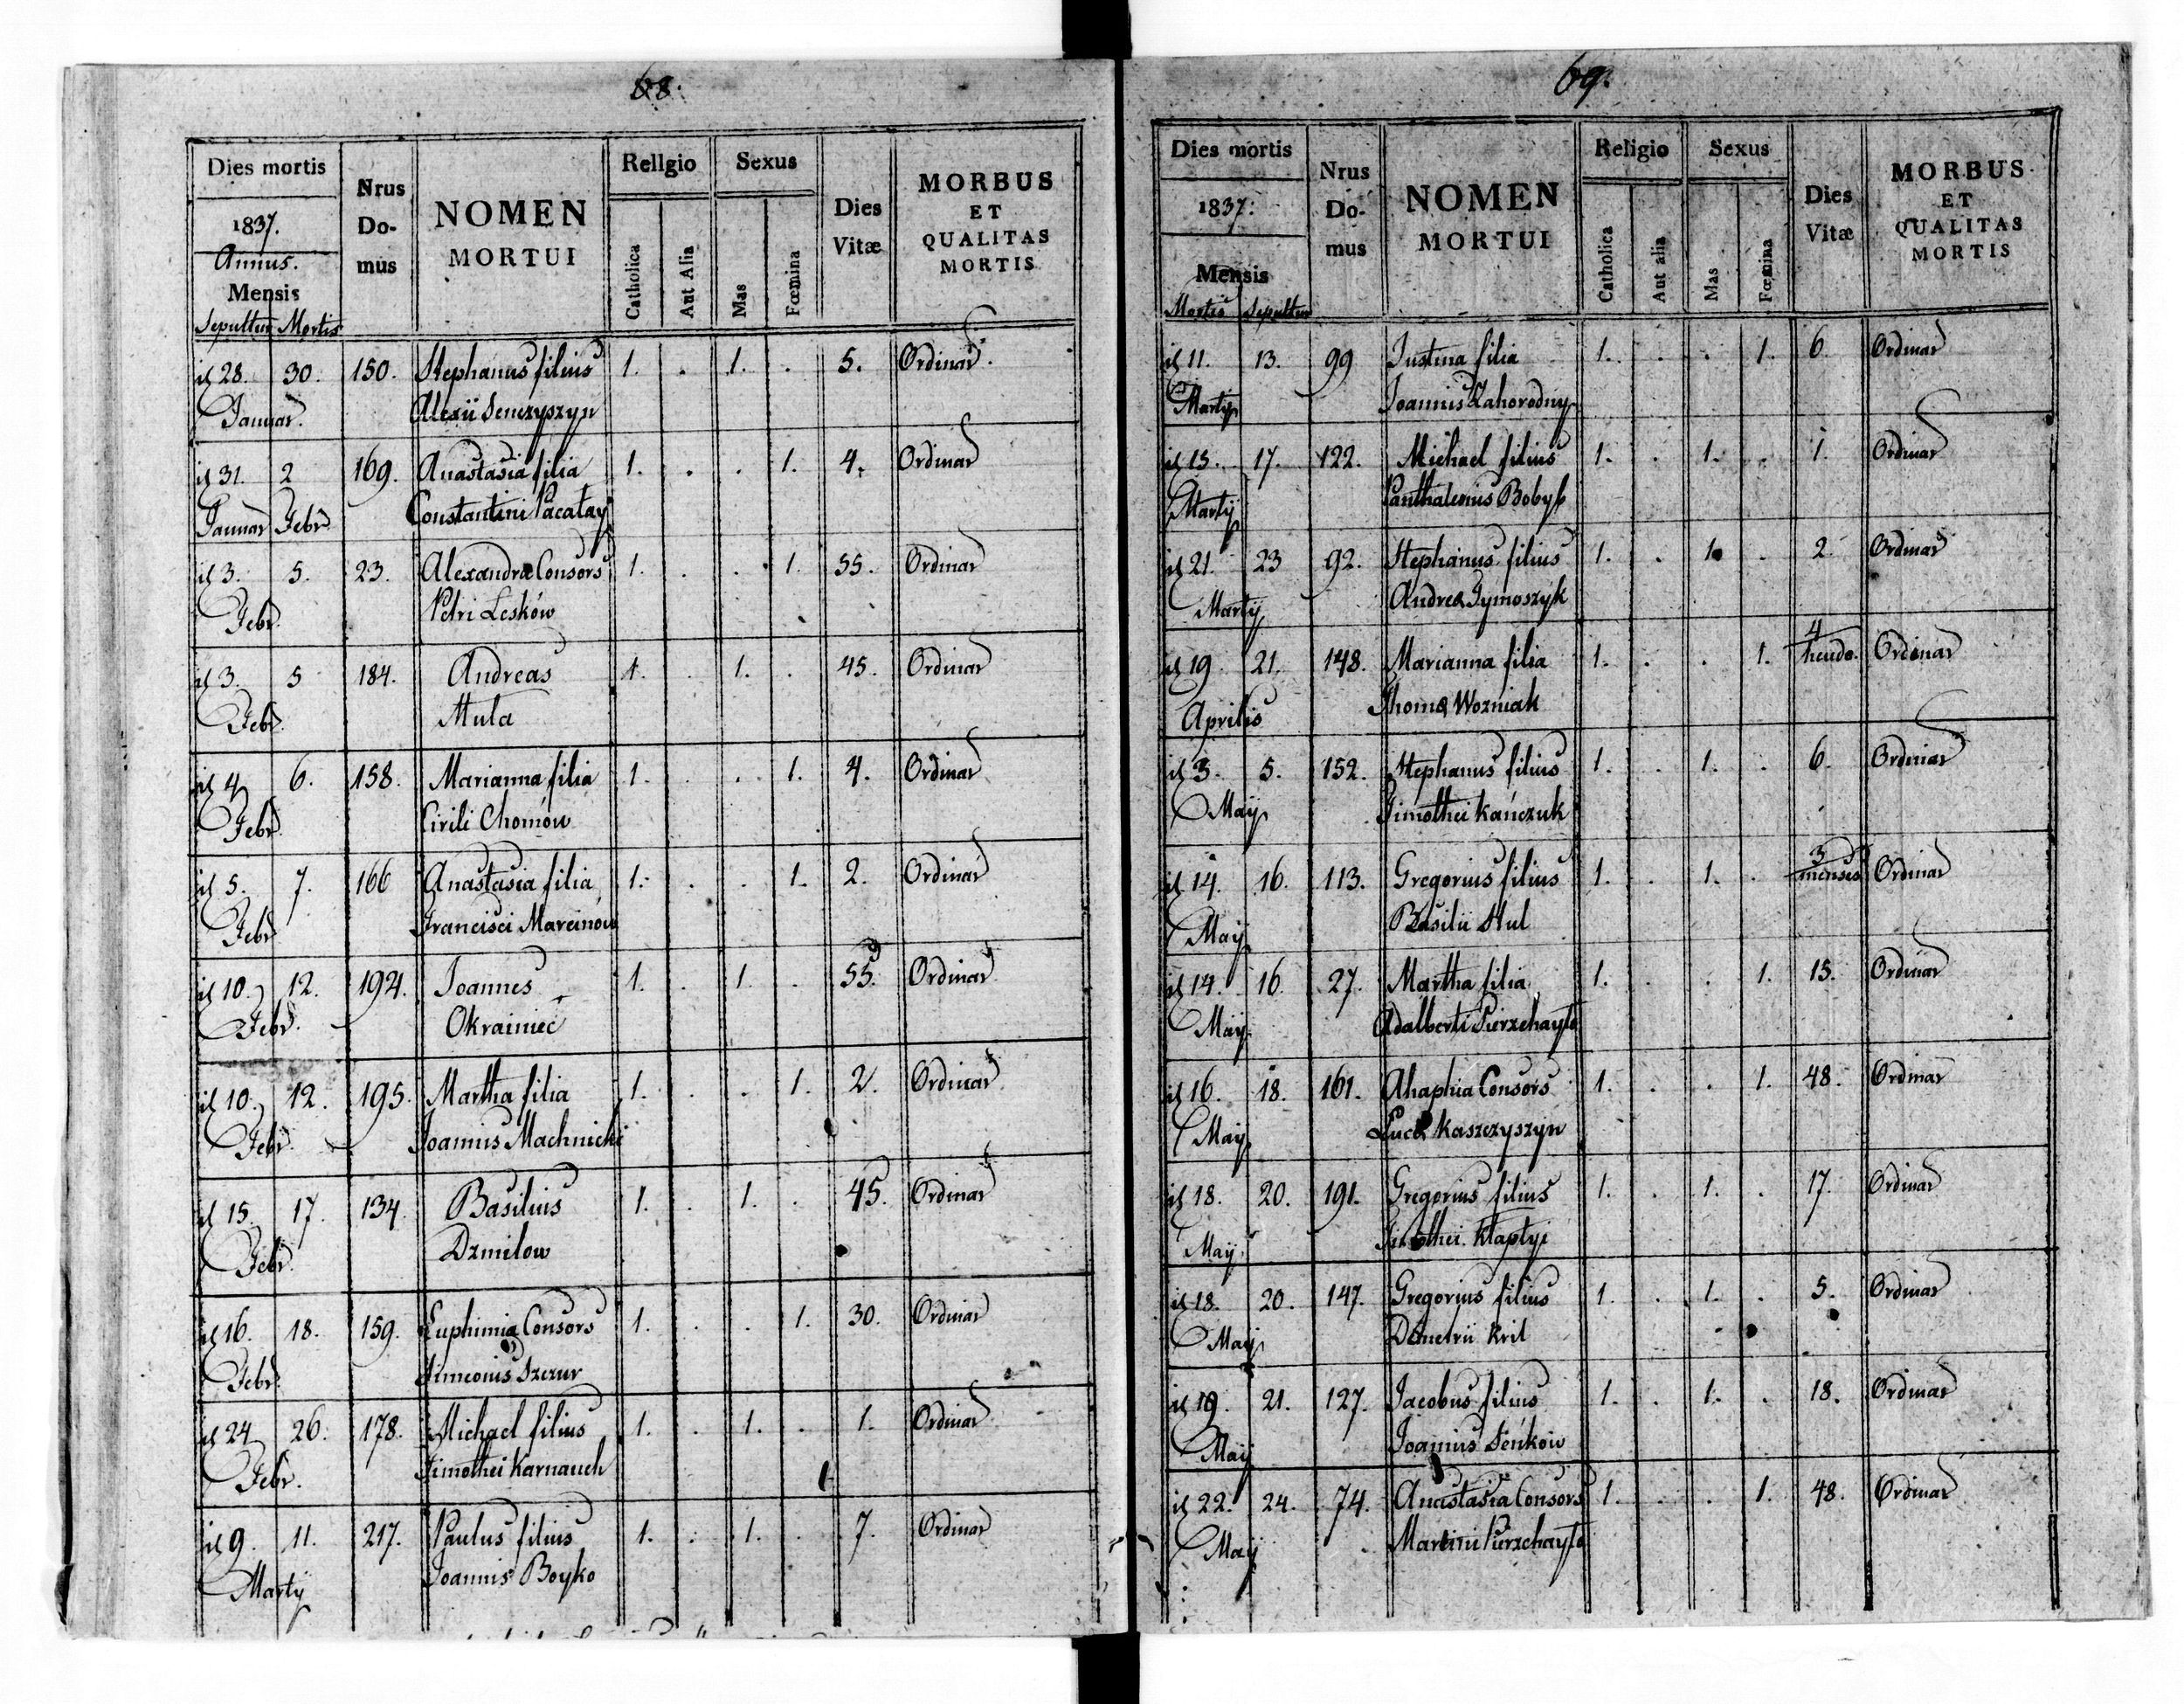 68.
Dies mortis
Nrus Domus
NOMEN MORTUI
Rellgio
Sexus
Dies Vitæ
MORBUS ET QUALITAS MORTIS
1837.
Annus.
Mensis
Catholica
Aut Alia
Mas
Fœmina
Sepultur Mortis
28. 30. 150. Stephanus filius 1. . 1. . 5. Ordinar.
Januar. Alexii Senczyszyn
31. 2 169. Anastasia filia 1. . . 1. 4. Ordinar
Januar Febr Constantini Pacatay
3. 5. 23. Alexandra Consors 1. . . 1. 55. Ordinar
Febr. Petri Lesków
3. 5 184. Andreas 1. . 1. . 45. Ordinar
Febr. Mula
4 6. 158. Marianna filia 1. . . 1. 4. Ordinar
Febr. Cirili Chomów
5. 7. 166 Anastasia filia 1. . . 1. 2. Ordinar
Febr Francisci Marcinów
10. 12. 194. Joannes 1. . 1. . 55. Ordinar
Febr. Okrainiec
10. 12. 195. Martha filia 1. . . 1. 2. Ordinar
Febr. Joannis Machnicki
15. 17. 134. Basilius 1. . 1. . 45. Ordinar
Febr. Dzmilow
16. 18. 159. Euphimia Consors 1. . . 1. 30. Ordinar
Febr. Simeonis Szczur
24 26. 178. Michael filius 1. . 1. . 1. Ordinar
Febr. Timothei Karnauch
9. 11. 217. Paulus filius 1. . 1. . 7. Ordinar
Martij Joannis Boyko
69.
Dies mortis
Nrus Domus
NOMEN MORTUI
Religio
Sexus
Dies Vitæ
MORBUS ET QUALITAS MORTIS
1837.
Mensis
Catholica
Aut alia
Mas
Fœmina
Mortis Sepultur
11. 13. 99 Justina filia 1. . . 1. 6. Ordinar
Martij Joannis Zahorodny
15. 17. 122. Michael filius 1. . 1. . 1. Ordinar
Martij Panthaleonis Bobyk
21. 23 92. Stephanus filius 1. . 1. . 2. Ordinar
Martij Andrea Tymoszyk
19 21. 148. Marianna filia 1. . . 1. 4 Ordinar
Aprilis Thoma Wozniak
3. 5. 152. Stephanus filius 1. . 1. . 6. Ordinar
Maij Timothei Kańczuk
14. 16. 113. Gregorius filius 1. . 1. . 3 menses Ordinar
Maij Basilii Stul
14. 16. 27. Martha filia 1. . . 1. 15. Ordinar
Maij Adalberti Pierzchayło
16. 18. 161. Ahaphia Consors 1. . . 1. 48. Ordinar
Maij Luca Kaszczyszyn
18. 20. 191. Gregorius filius 1. . 1. . 17. Ordinar
Maij Timothei Kłaptyi
18. 20. 147. Gregorius filius 1. . 1. . 5. Ordinar
Maij Demetrii Kril
19. 21. 127. Jacobus filius 1. . 1. . 18. Ordinar
Maij Joannis Seńków
22. 24. 74. Anastasia Consors 1. . . 1. 48. Ordinar
Maij Martini Pierzchayło